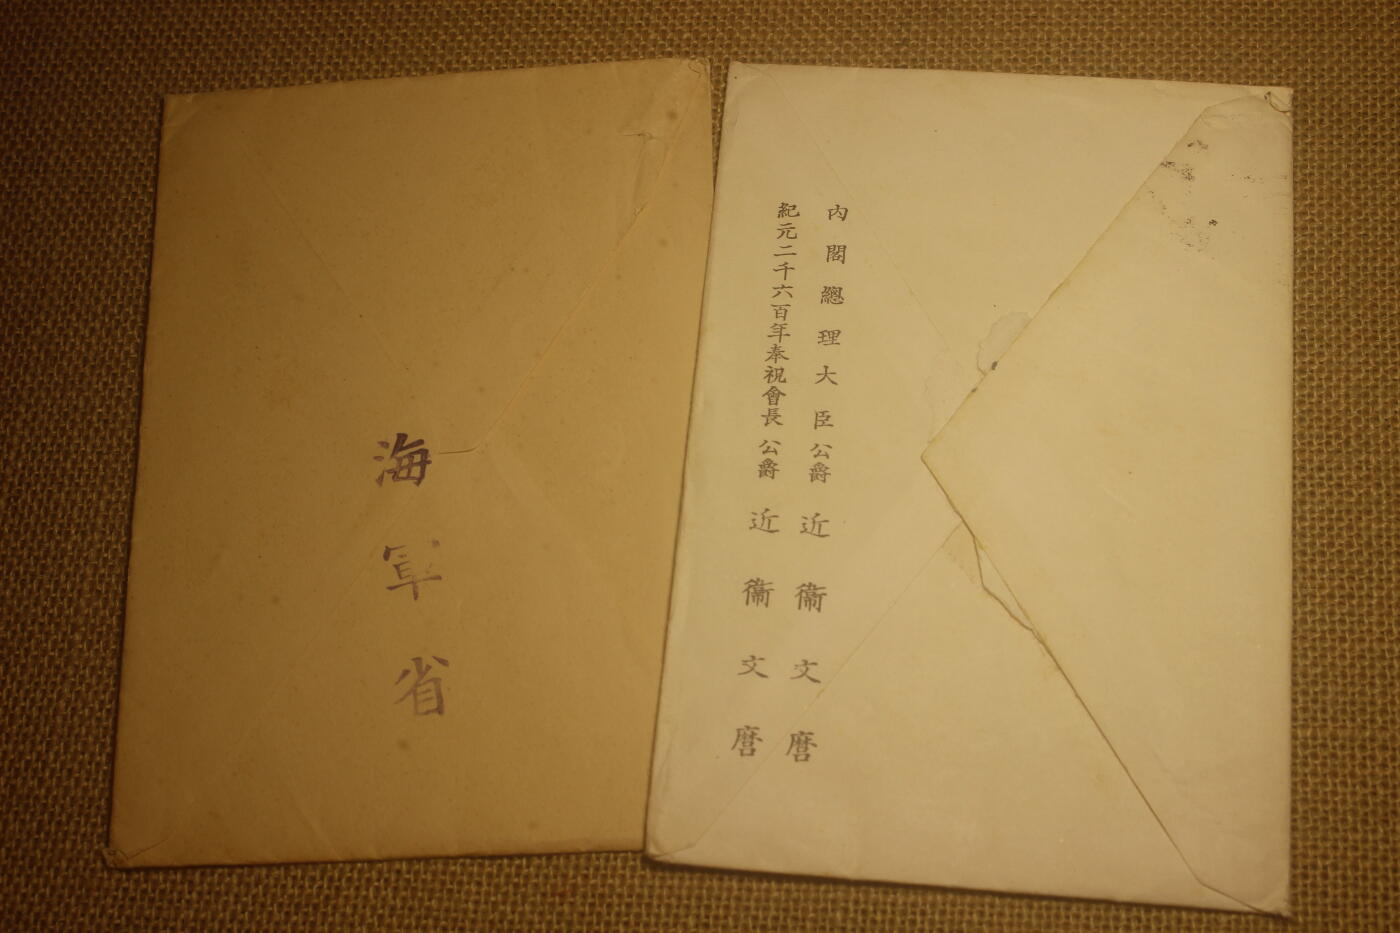 海軍省
内閣總理大臣公爵近衞文麿
紀元二千六百年奉祝會長公爵近衞文麿